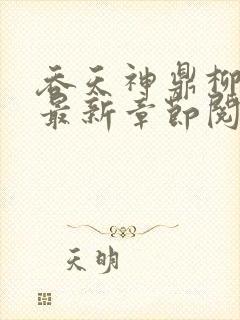 吞天神鼎柳
最新章节阅
天明